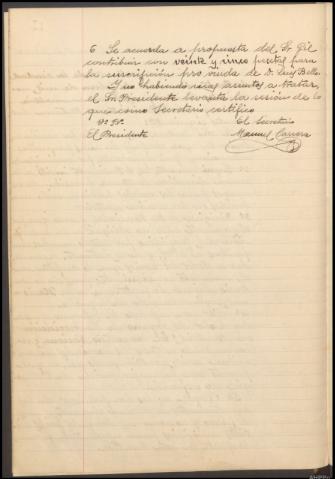 6 Se acuerda a propuesta del Sr. Gil
contribuir con veinte y cinco pesetas para
la suscrición pro viuda de D. Luis Bello.
Y no habiendo más asuntos a tratar,
el Sr. Presidente levanta la sesión de lo
que como Secretario certifico
Vº Bº El Secretario
El Presidente Manuel